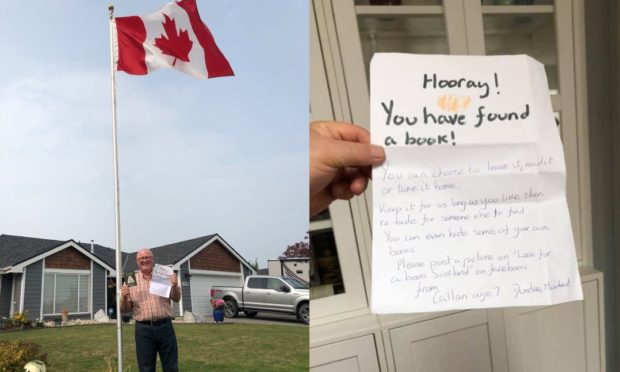 Hooray!
You have found
a book!
You can choose to leave it, read it
or take it home.
Keep it for as long as you like then
re-hide for someone else to find
You can even hide some of your own
books
Please post a picture on "Look for
a book Scotland" on facebook
from
Callan age 7 Dundee,